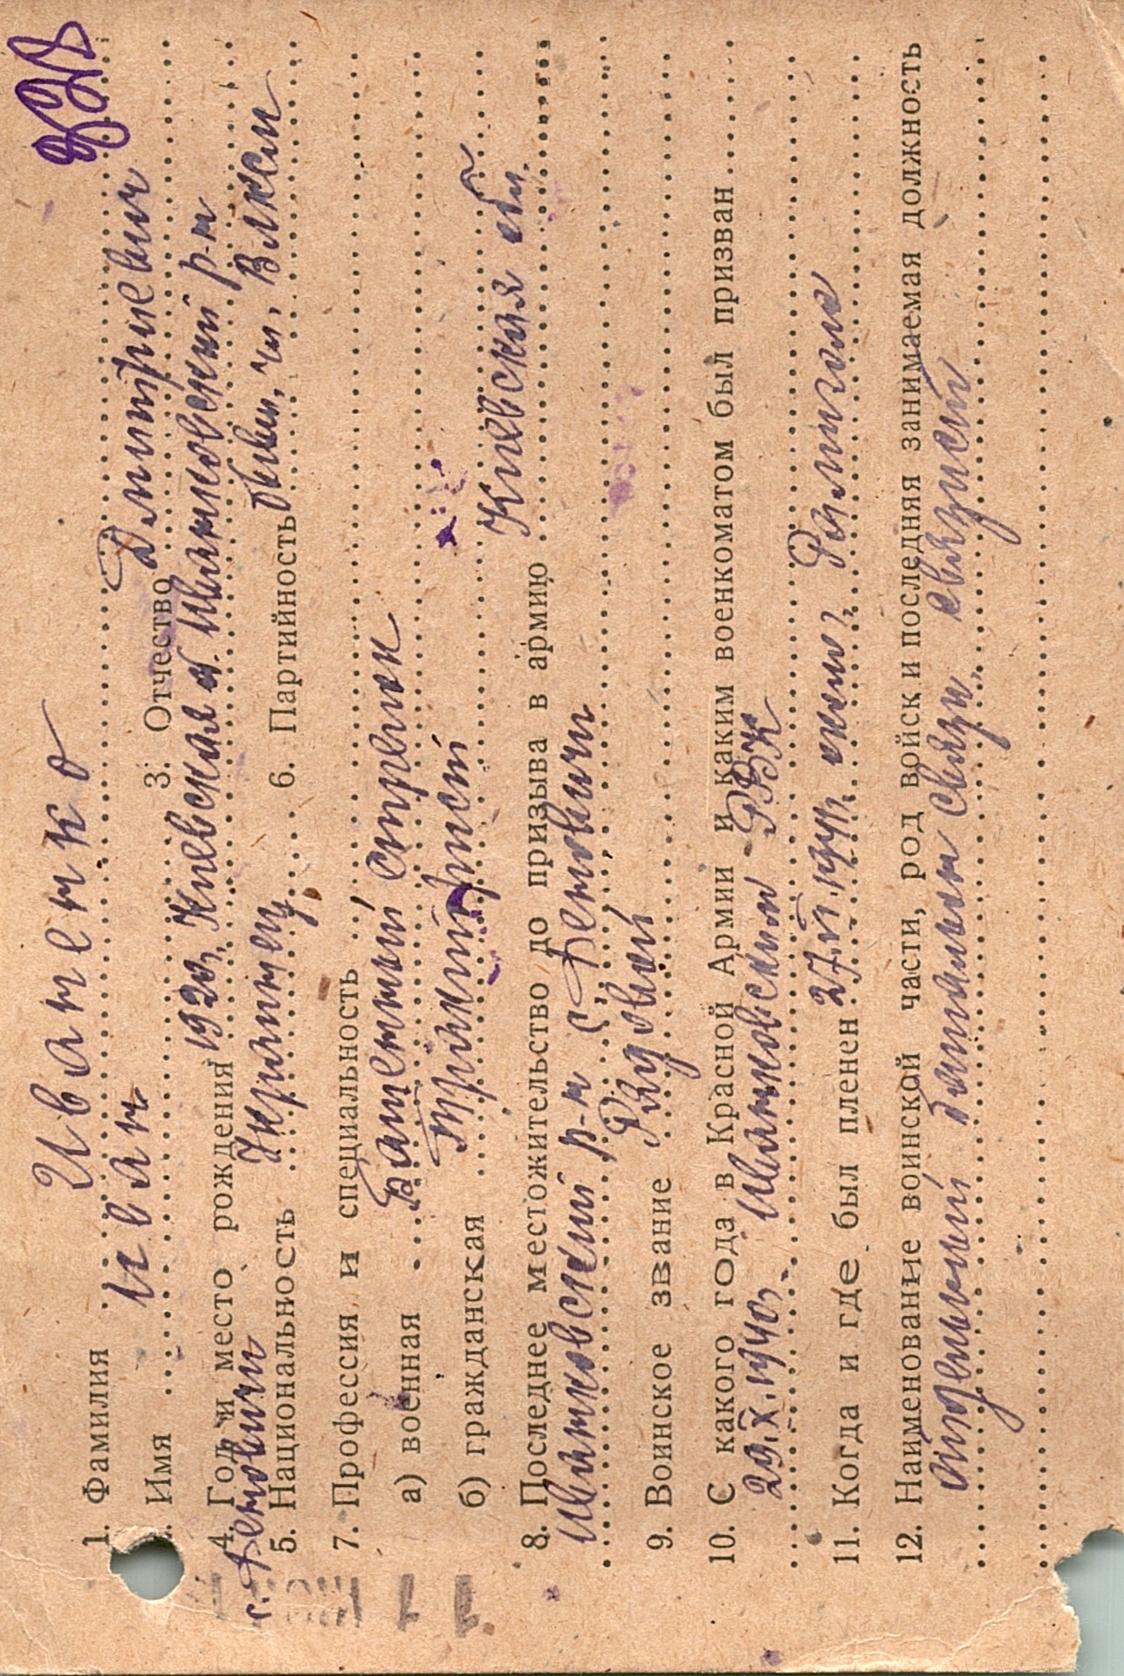 1. Фамилия Иваненко
2. Имя Иван 3. Отчество Дмитриевич
4. Год и место рождения 1920, Киевская о. Иванковский р-н
с. Феневичи
5. Национальность Украинец 6. Партийность бывш. чл. ВЛКСМ
7. Профессия и специальность
а) военная Башенный стрелок
б) гражданская Тракторист
8. Последнее местожительство до призыва в армию Киевская обл.
Иванковский р-н с. Феневичи
9. Воинское звание Рядовой
10. С какого года в Красной Армии и каким военкоматом был призван
29.X.1940, Иванковским РВК
11. Когда и где был пленен 27.VI.1941, г.
12. Наименование воинской части, род войск и последняя занимаемая должность
отдельный батальон связи. связист